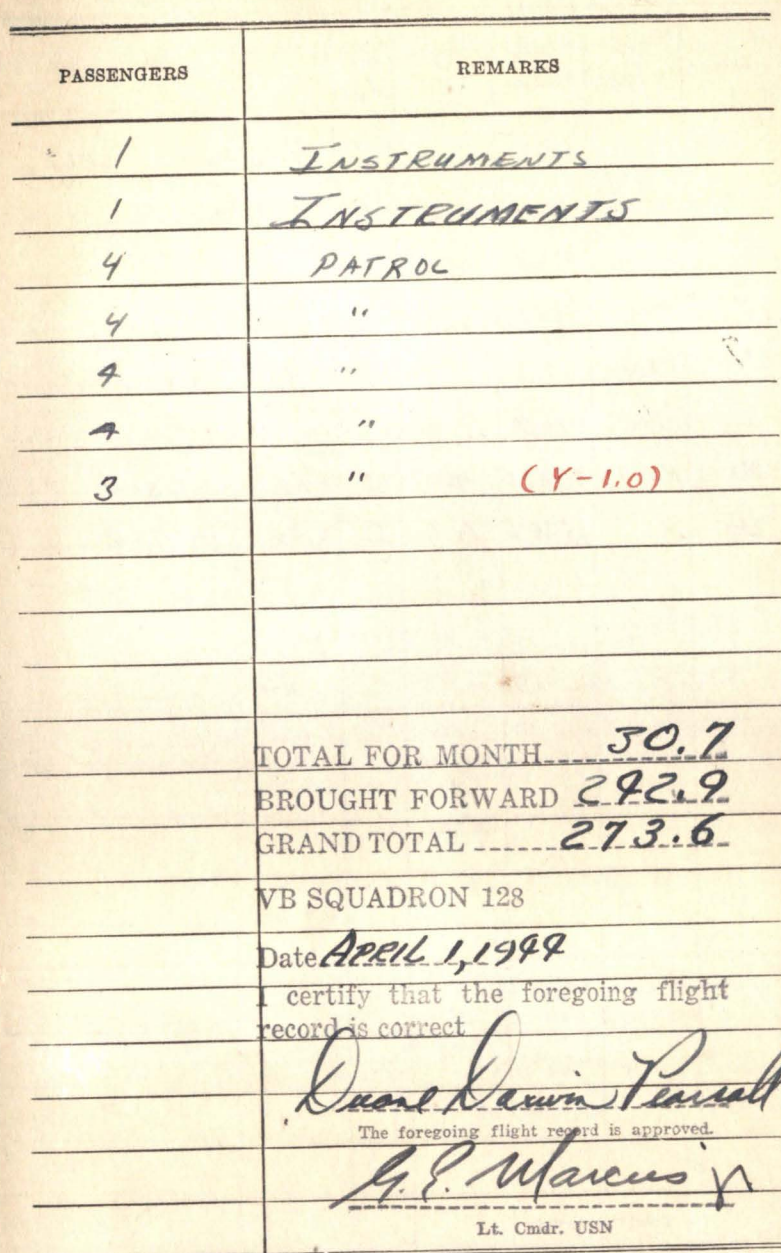 PASSENGERS REMARKS
1 INSTRUMENTS
1 INSTRUMENTS
4 PATROL
4 "
4 "
4 "
3 " (Y-1.0)
TOTAL FOR MONTH 30.7
BROUGHT FORWARD 242.9
GRAND TOTAL 273.6
VB SQUADRON 128
Date APRIL 1, 1944
I certify that the foregoing flight
record is correct
Duane Darwin Pearsall
The foregoing flight record is approved.
G. E. Marcus Jr
Lt. Cmdr. USN